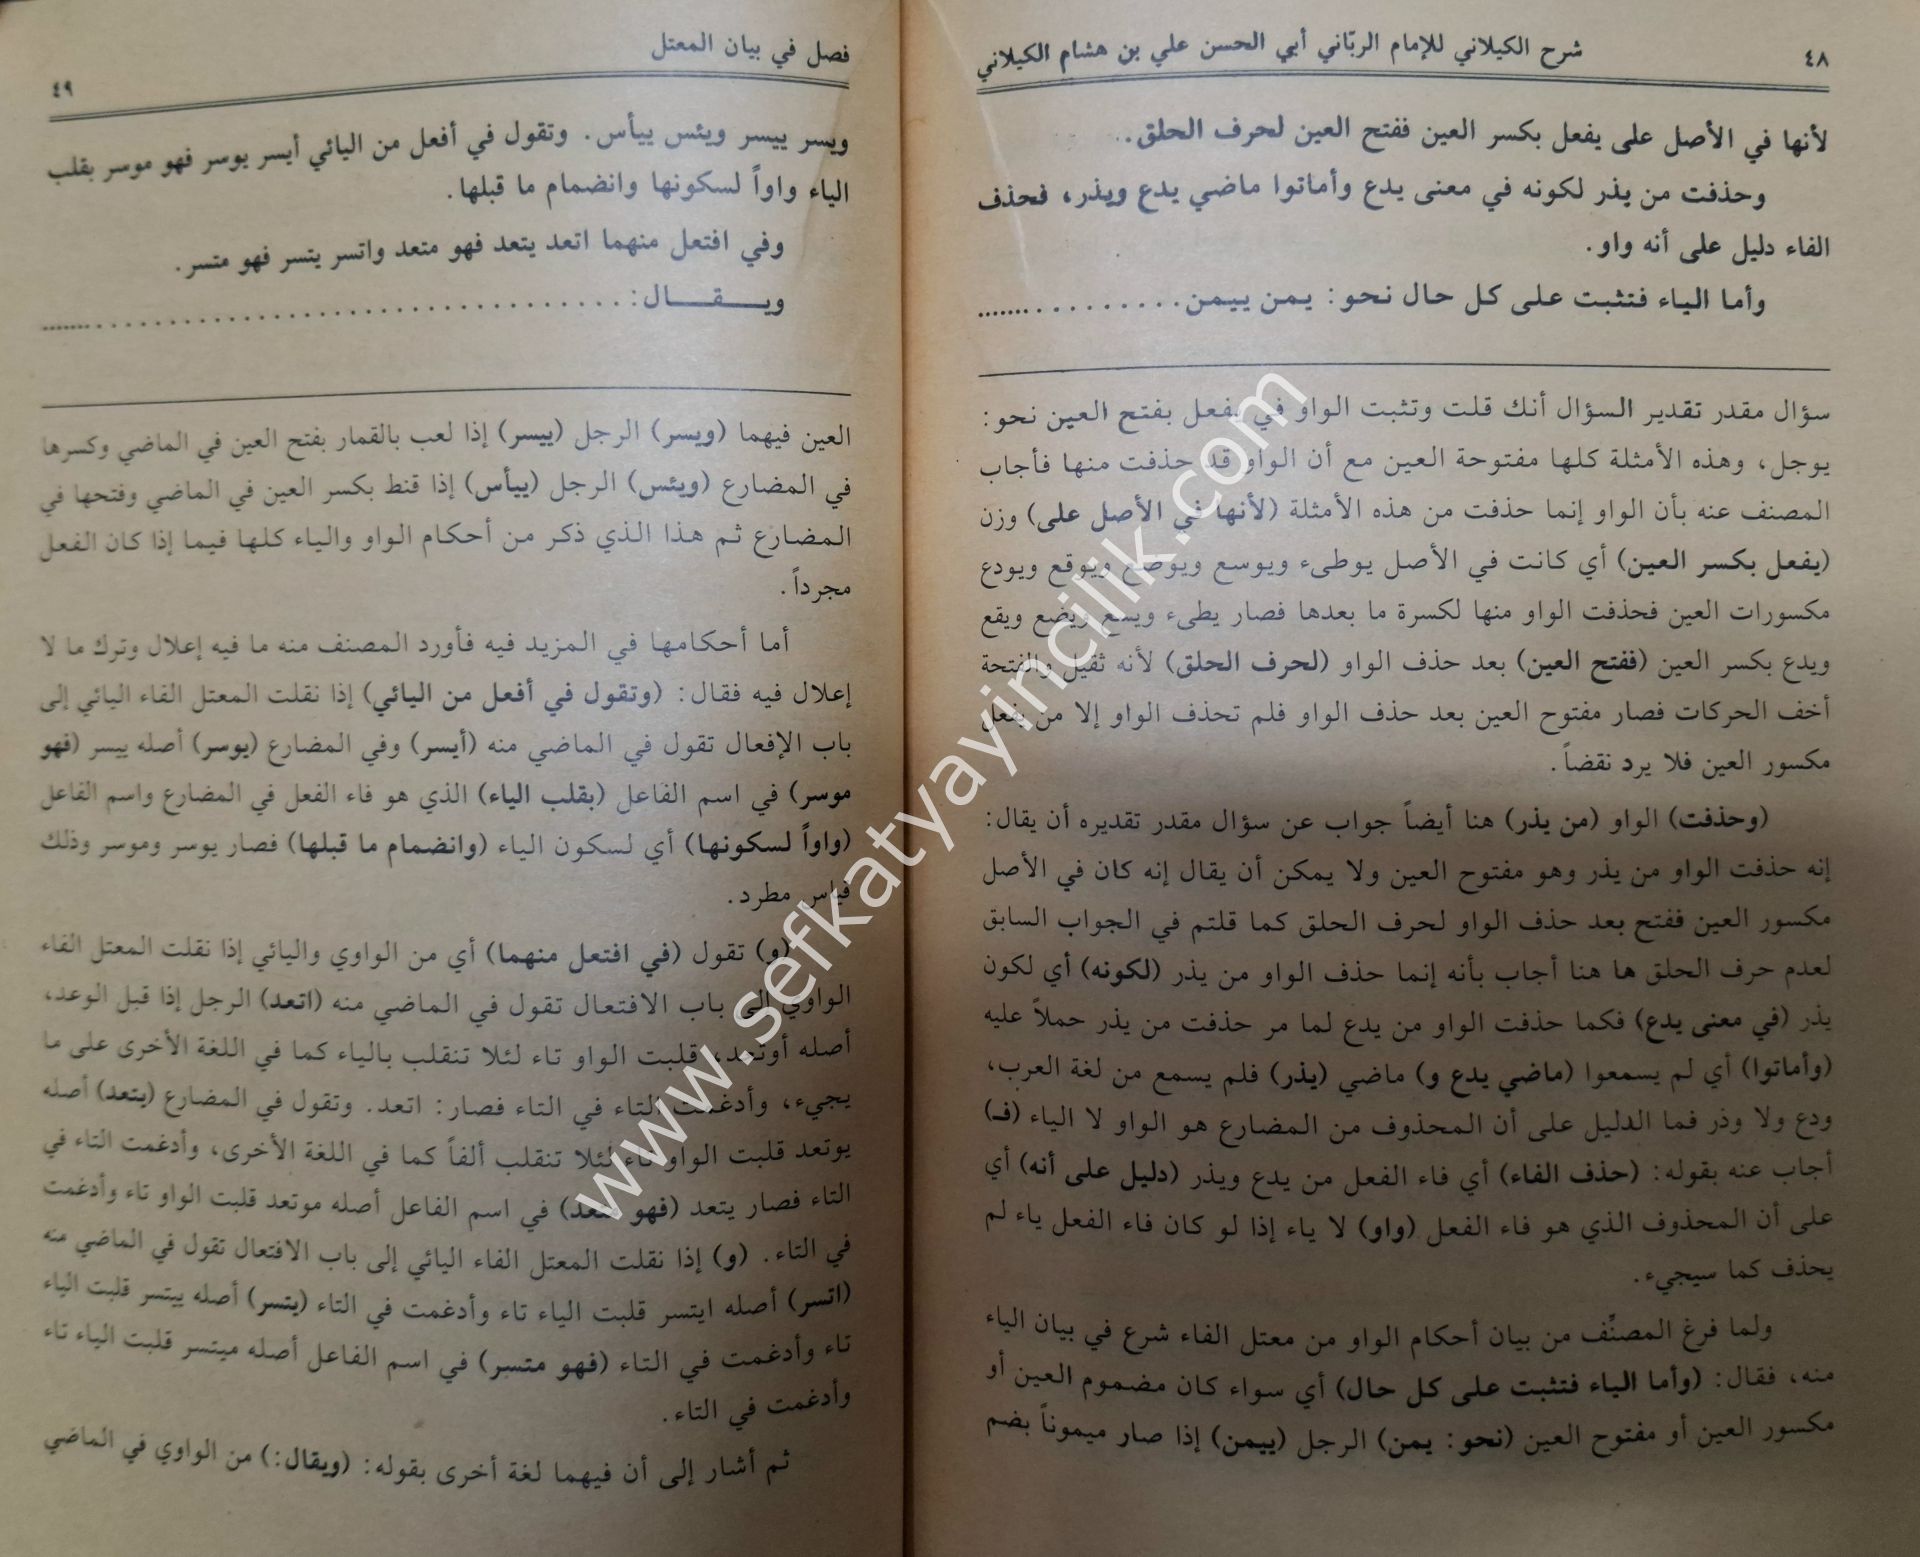 ٤٨
شرح الكيلاني للإمام الربّاني أبي الحسن علي بن هشام الكيلاني
لأنها في الأصل على يفعل بكسر العين ففتح العين لحرف الحلق.
وحذفت من يذر لكونه في معنى يدع وأماتوا ماضي يدع ويذر، فحذف
الفاء دليل على أنه واو.
وأما الياء فتثبت على كل حال نحو: يمن ييمن................
سؤال مقدر تقدير السؤال أنك قلت وتثبت الواو في يفعل بفتح العين نحو:
يوجل، وهذه الأمثلة كلها مفتوحة العين مع أن الواو قد حذفت منها فأجاب
المصنف عنه بأن الواو إنما حذفت من هذه الأمثلة (لأنها في الأصل على) وزن
(يفعل بكسر العين) أي كانت في الأصل يوطىء ويوسع ويوضع ويوقع ويودع
مكسورات العين فحذفت الواو منها لكسرة ما بعدها فصار يطىء ويسع ويضع ويقع
ويدع بكسر العين (ففتح العين) بعد حذف الواو (لحرف الحلق) لأنه ثقيل والفتحة
أخف الحركات فصار مفتوح العين بعد حذف الواو فلم تحذف الواو إلا من يفعل
مكسور العين فلا يرد نقضاً.
(وحذفت) الواو (من يذر) هنا أيضاً جواب عن سؤال مقدر تقديره أن يقال:
إنه حذفت الواو من يذر وهو مفتوح العين ولا يمكن أن يقال إنه كان في الأصل
مكسور العين ففتح بعد حذف الواو لحرف الحلق كما قلتم في الجواب السابق
لعدم حرف الحلق ها هنا أجاب بأنه إنما حذف الواو من يذر (لكونه) أي لكون
يذر (في معنى يدع) فكما حذفت الواو من يدع لما مر حذفت من يذر حملاً عليه
(وأماتوا) أي لم يسمعوا (ماضي يدع و) ماضي (يذر) فلم يسمع من لغة العرب،
ودع ولا وذر فما الدليل على أن المحذوف من المضارع هو الواو لا الياء (فـ)
أجاب عنه بقوله: (حذف الفاء) أي فاء الفعل من يدع ويذر (دليل على أنه) أي
على أن المحذوف الذي هو فاء الفعل (واو) لا ياء إذا لو كان فاء الفعل ياء لم
يحذف كما سيجيء.
ولما فرغ المصنِّف من بيان أحكام الواو من معتل الفاء شرع في بيان الياء
منه، فقال: (وأما الياء فتثبت على كل حال) أي سواء كان مضموم العين أو
مكسور العين أو مفتوح العين (نحو: يمن) الرجل (ييمن) إذا صار ميموناً بضم
فصل في بيان المعتل
٤٩
ويسر ييسر ويئس ييأس. وتقول في أفعل من اليائي أيسر يوسر فهو موسر بقلب
الياء واواً لسكونها وانضمام ما قبلها.
وفي افتعل منهما اتعد يتعد فهو متعد واتسر يتسر فهو متسر.
ويـــقـــال:........................................
العين فيهما (ويسر) الرجل (ييسر) إذا لعب بالقمار بفتح العين في الماضي وكسرها
في المضارع (ويئس) الرجل (ييأس) إذا قنط بكسر العين في الماضي وفتحها في
المضارع ثم هذا الذي ذكر من أحكام الواو والياء كلها فيما إذا كان الفعل
مجرداً.
أما أحكامها في المزيد فيه فأورد المصنف منه ما فيه إعلال وترك ما لا
إعلال فيه فقال: (وتقول في أفعل من اليائي) إذا نقلت المعتل الفاء اليائي إلى
باب الإفعال تقول في الماضي منه (أيسر) وفي المضارع (يوسر) أصله ييسر (فهو
موسر) في اسم الفاعل (بقلب الياء) الذي هو فاء الفعل في المضارع واسم الفاعل
(واواً لسكونها) أي لسكون الياء (وانضمام ما قبلها) فصار يوسر وموسر وذلك
قياس مطرد.
(و) تقول (في افتعل منهما) أي من الواوي واليائي إذا نقلت المعتل الفاء
الواوي إلى باب الافتعال تقول في الماضي منه (اتعد) الرجل إذا قبل الوعد،
أصله أوتعد، قلبت الواو تاء لئلا تنقلب بالياء كما في اللغة الأخرى على ما
يجيء، وأدغمت التاء في التاء فصار: اتعد. وتقول في المضارع (يتعد) أصله
يوتعد قلبت الواو تاء لئلا تنقلب ألفاً كما في اللغة الأخرى، وأدغمت التاء في
التاء فصار يتعد (فهو متعد) في اسم الفاعل أصله موتعد قلبت الواو تاء وأدغمت
في التاء. (و) إذا نقلت المعتل الفاء اليائي إلى باب الافتعال تقول في الماضي منه
(اتسر) أصله ايتسر قلبت الياء تاء وأدغمت في التاء (يتسر) أصله ييتسر قلبت الياء
تاء وأدغمت في التاء (فهو متسر) في اسم الفاعل أصله ميتسر قلبت الياء تاء
وأدغمت في التاء.
ثم أشار إلى أن فيهما لغة أخرى بقوله: (ويقال:) من الواوي في الماضي
www.sefkatyayincilik.com